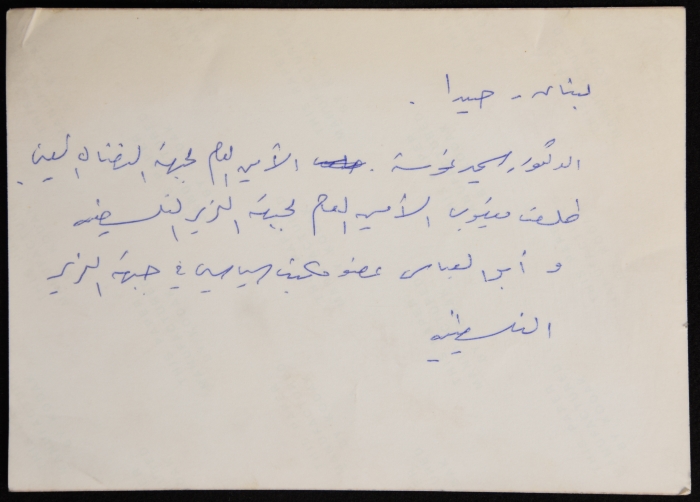 لبنان - صيدا .
الدكتور سمير غوشة . الأمين العام لجبهة النضال الشعبي .
طلعت يعقوب الأمين العام لجبهة التحرير الفلسطينية
و أبو العباس عضو مكتب سياسي في جبهة التحرير
الفلسطينية